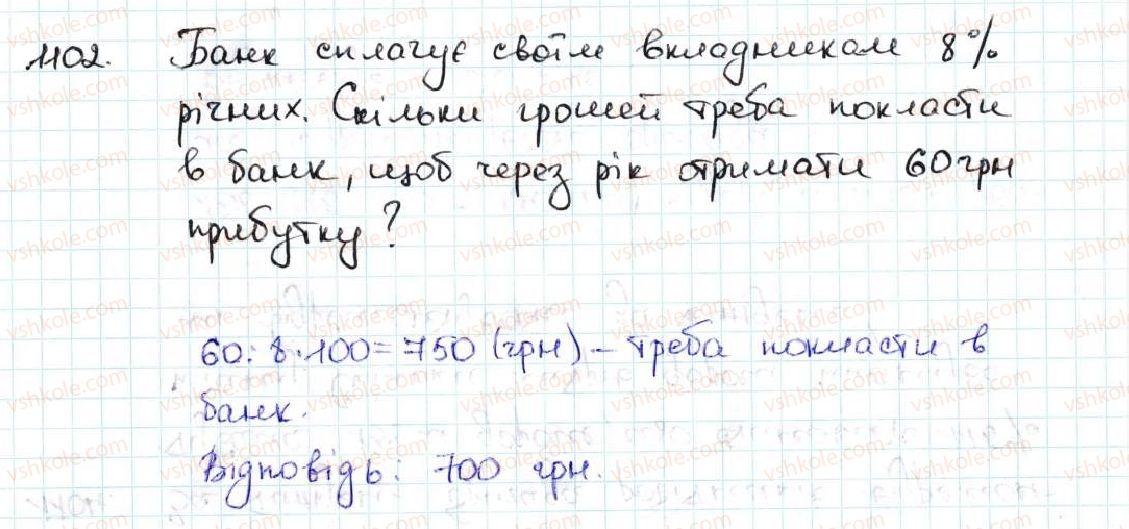 1102. Банк сплачує своїм вкладникам 8%
річних. Скільки грошей треба покласти
в банк, щоб через рік отримати 60 грн
прибутку?
60:8·100=750 (грн) – треба покласти в
банк.
Відповідь: 700 грн.